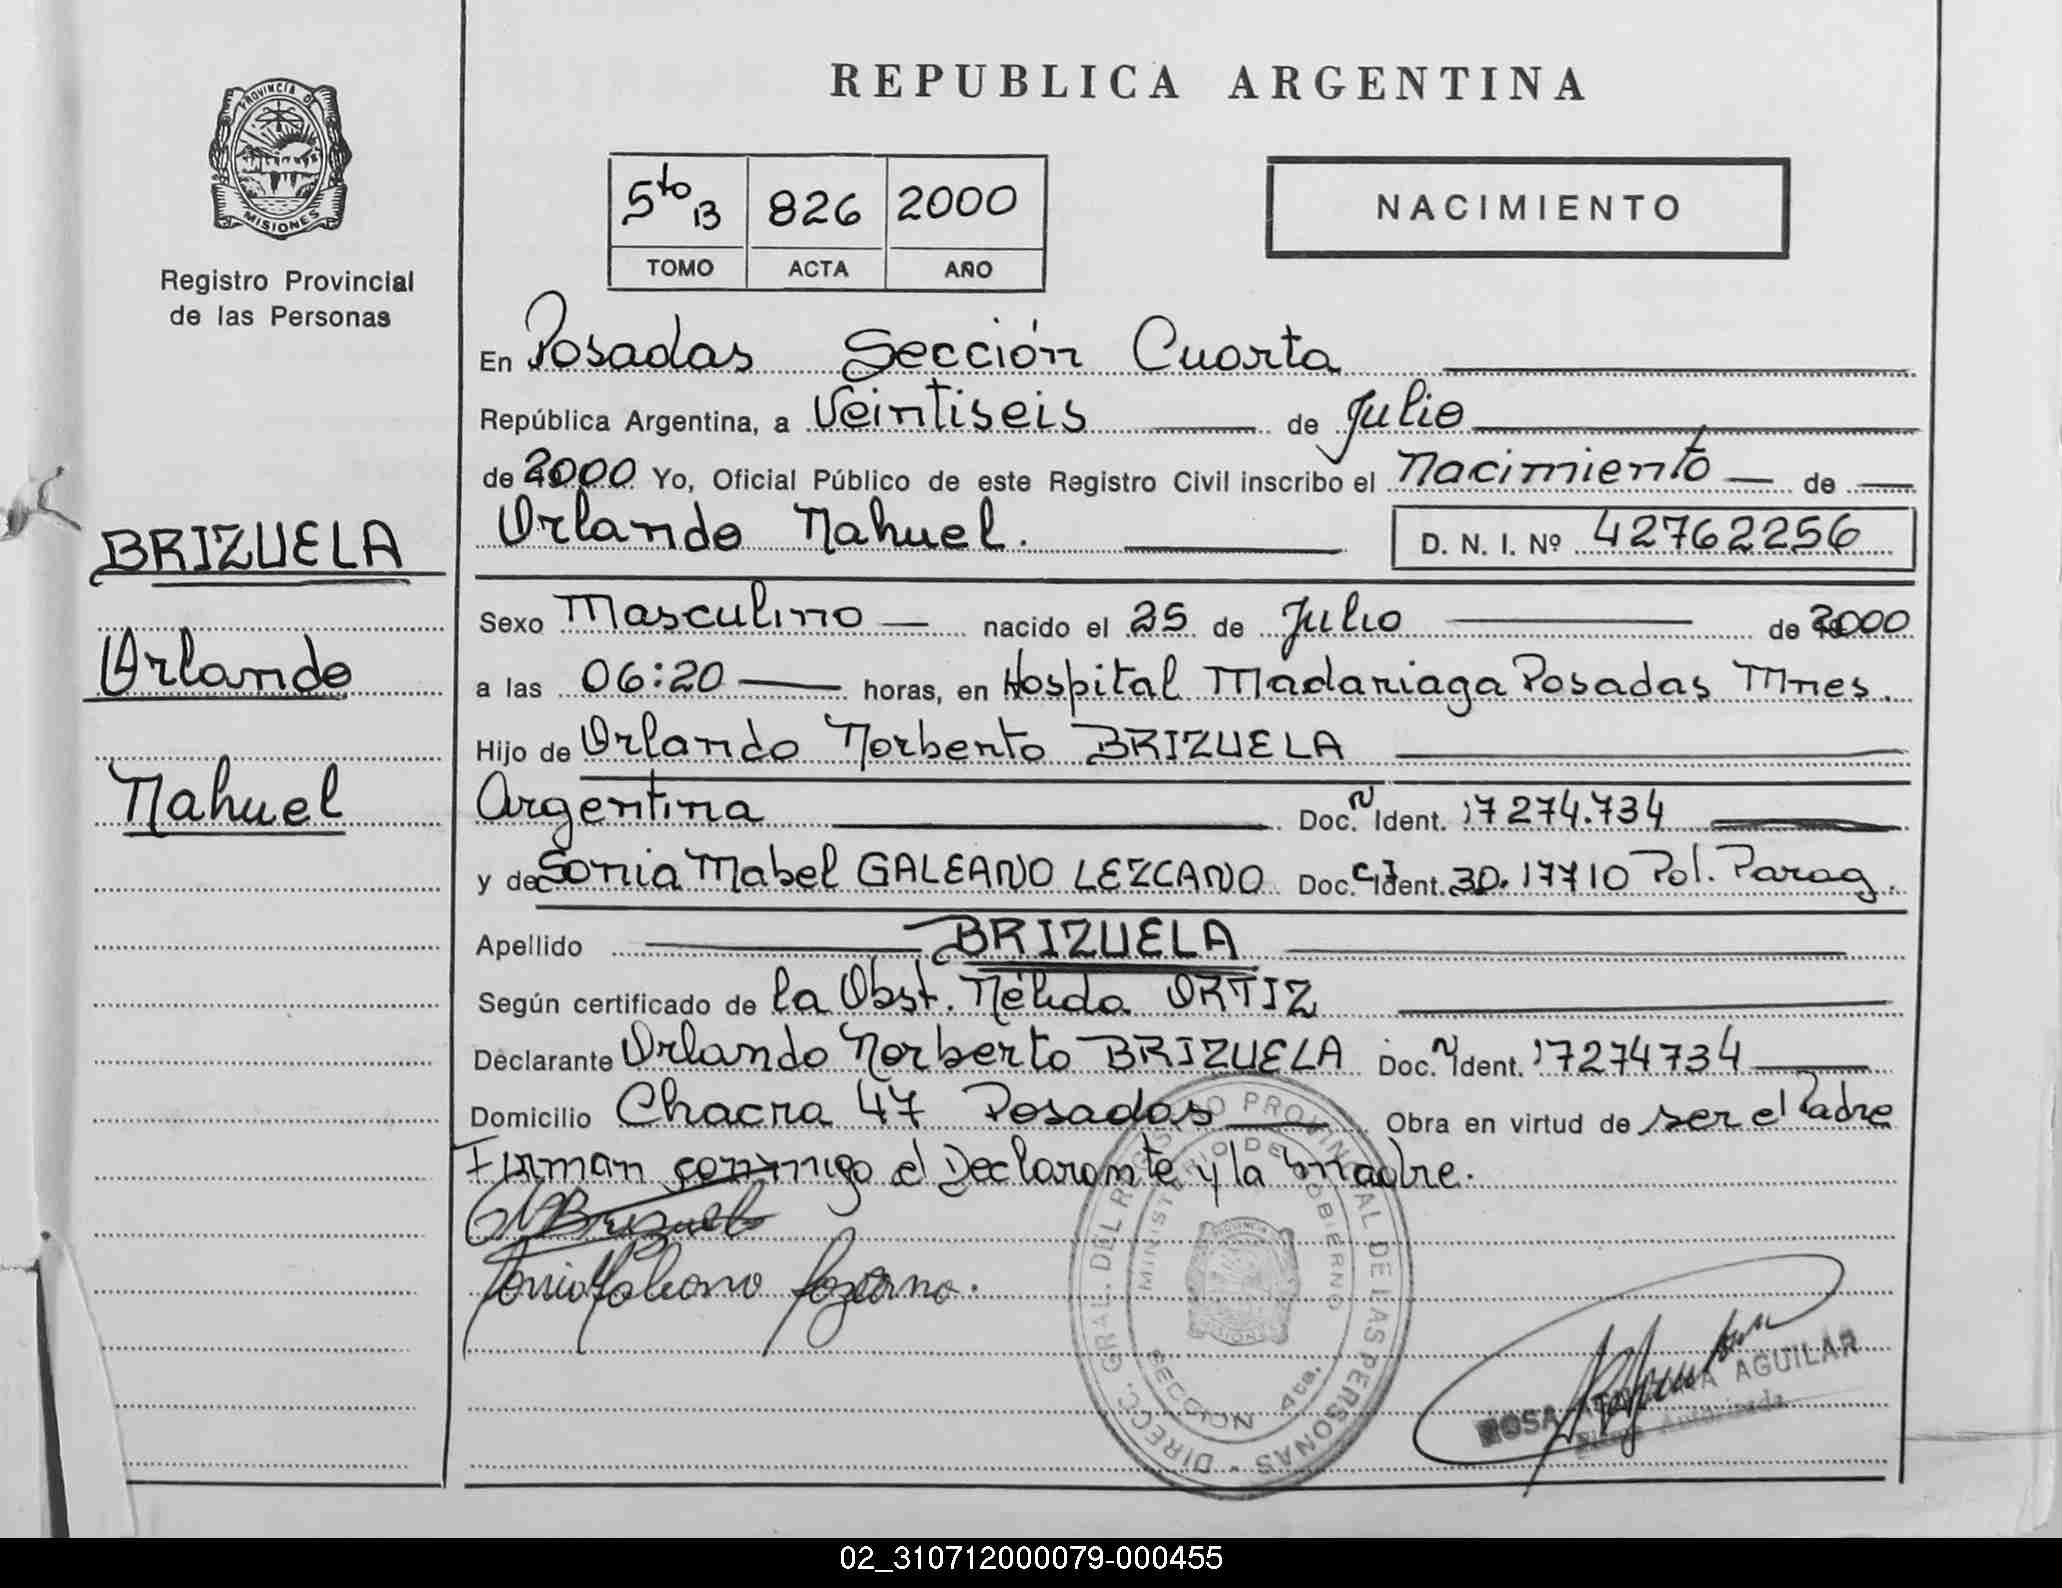 REPUBLICA ARGENTINA
PROVINCIA DE MISIONES
Registro Provincial
de las Personas
5to B 826 2000
TOMO ACTA AÑO
NACIMIENTO
En Posadas Sección Cuarta
República Argentina, a Veintiseis de Julio
de 2000 Yo, Oficial Público de este Registro Civil inscribo el Nacimiento de
Orlando Nahuel. D. N. I. Nº 42762256
BRIZUELA
Orlando
Nahuel
Sexo Masculino nacido el 25 de Julio de 2000
a las 06:20 horas, en Hospital Madariaga Posadas Mnes.
Hijo de Orlando Norberto BRIZUELA
Argentina Doc. N Ident. 17274.734
y de Sonia Mabel GALEANO LEZCANO Doc. C.I Ident. 30.17710 Pol. Parag.
Apellido BRIZUELA
Según certificado de la Obst. Nélida ORTIZ
Declarante Orlando Norberto BRIZUELA Doc. N Ident. 17274734
Domicilio Chacra 47 Posadas Obra en virtud de ser el Padre
Firman conmigo el Declarante y la madre.
Brizuela
Sonia Galeano Lezcano.
DIRECC. GRAL. DEL REGISTRO PROVINCIAL DE LAS PERSONAS
MINISTERIO DE GOBIERNO
PROVINCIA MISIONES
SECCION 4ta.
ROSA AGUILAR
Autorizada
02_310712000079-000455